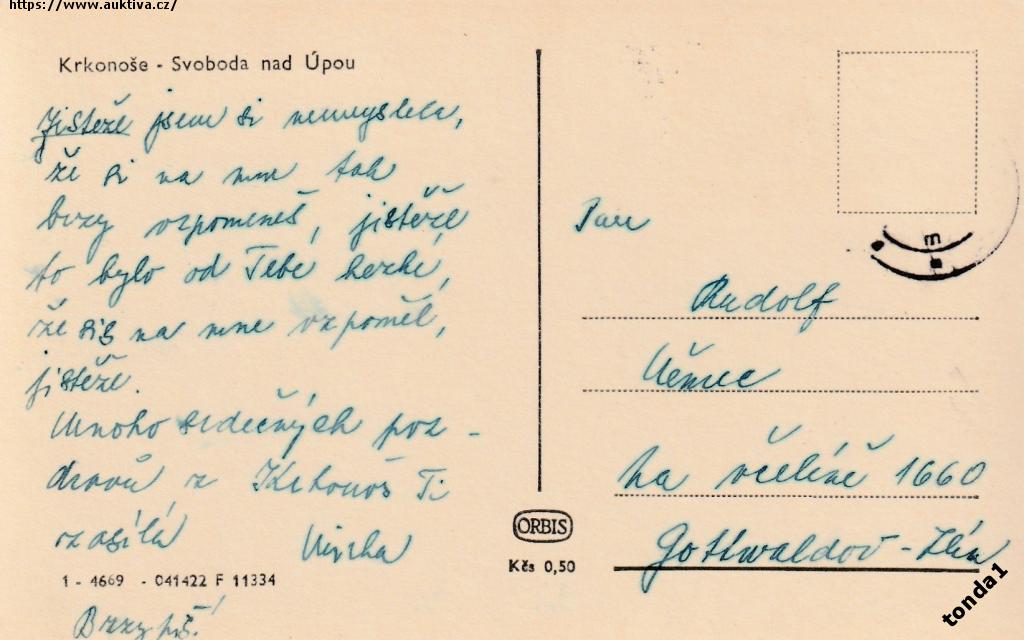 https://www.auktiva.cz/
Krkonoše - Svoboda nad Úpou
Jistěže jsem si nemyslela,
že si na mne tak
brzy vzpomeneš, jistěže
to bylo od Tebe hezké,
že sis na mne vzpoměl,
jistěže.
Mnoho srdečných poz-
dravů z Krkonoš Ti
zasílá
1 - 4669 - 041422 F 11334
Brzy piš!
Pan
Rudolf
Němec
na včelíně 1660
Gottwaldov - Zlín
ORBIS
Kčs 0,50
m
tonda1